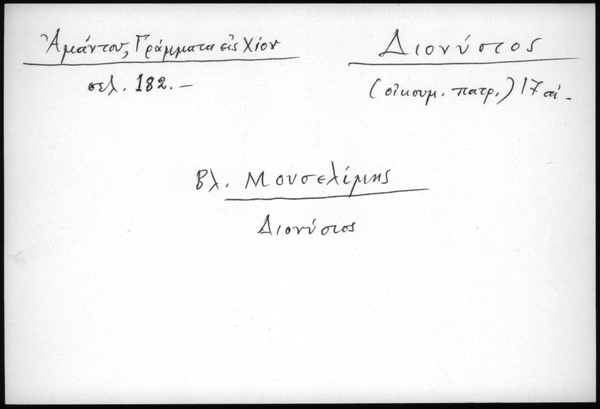 Ἀμάντου, Γράμματα εἰς Χίον
σελ. 182.—
Διονύσιος
(οἰκουμ. πατρ.) 17 αἰ.
Βλ. Μουσελίμης
Διονύσιος